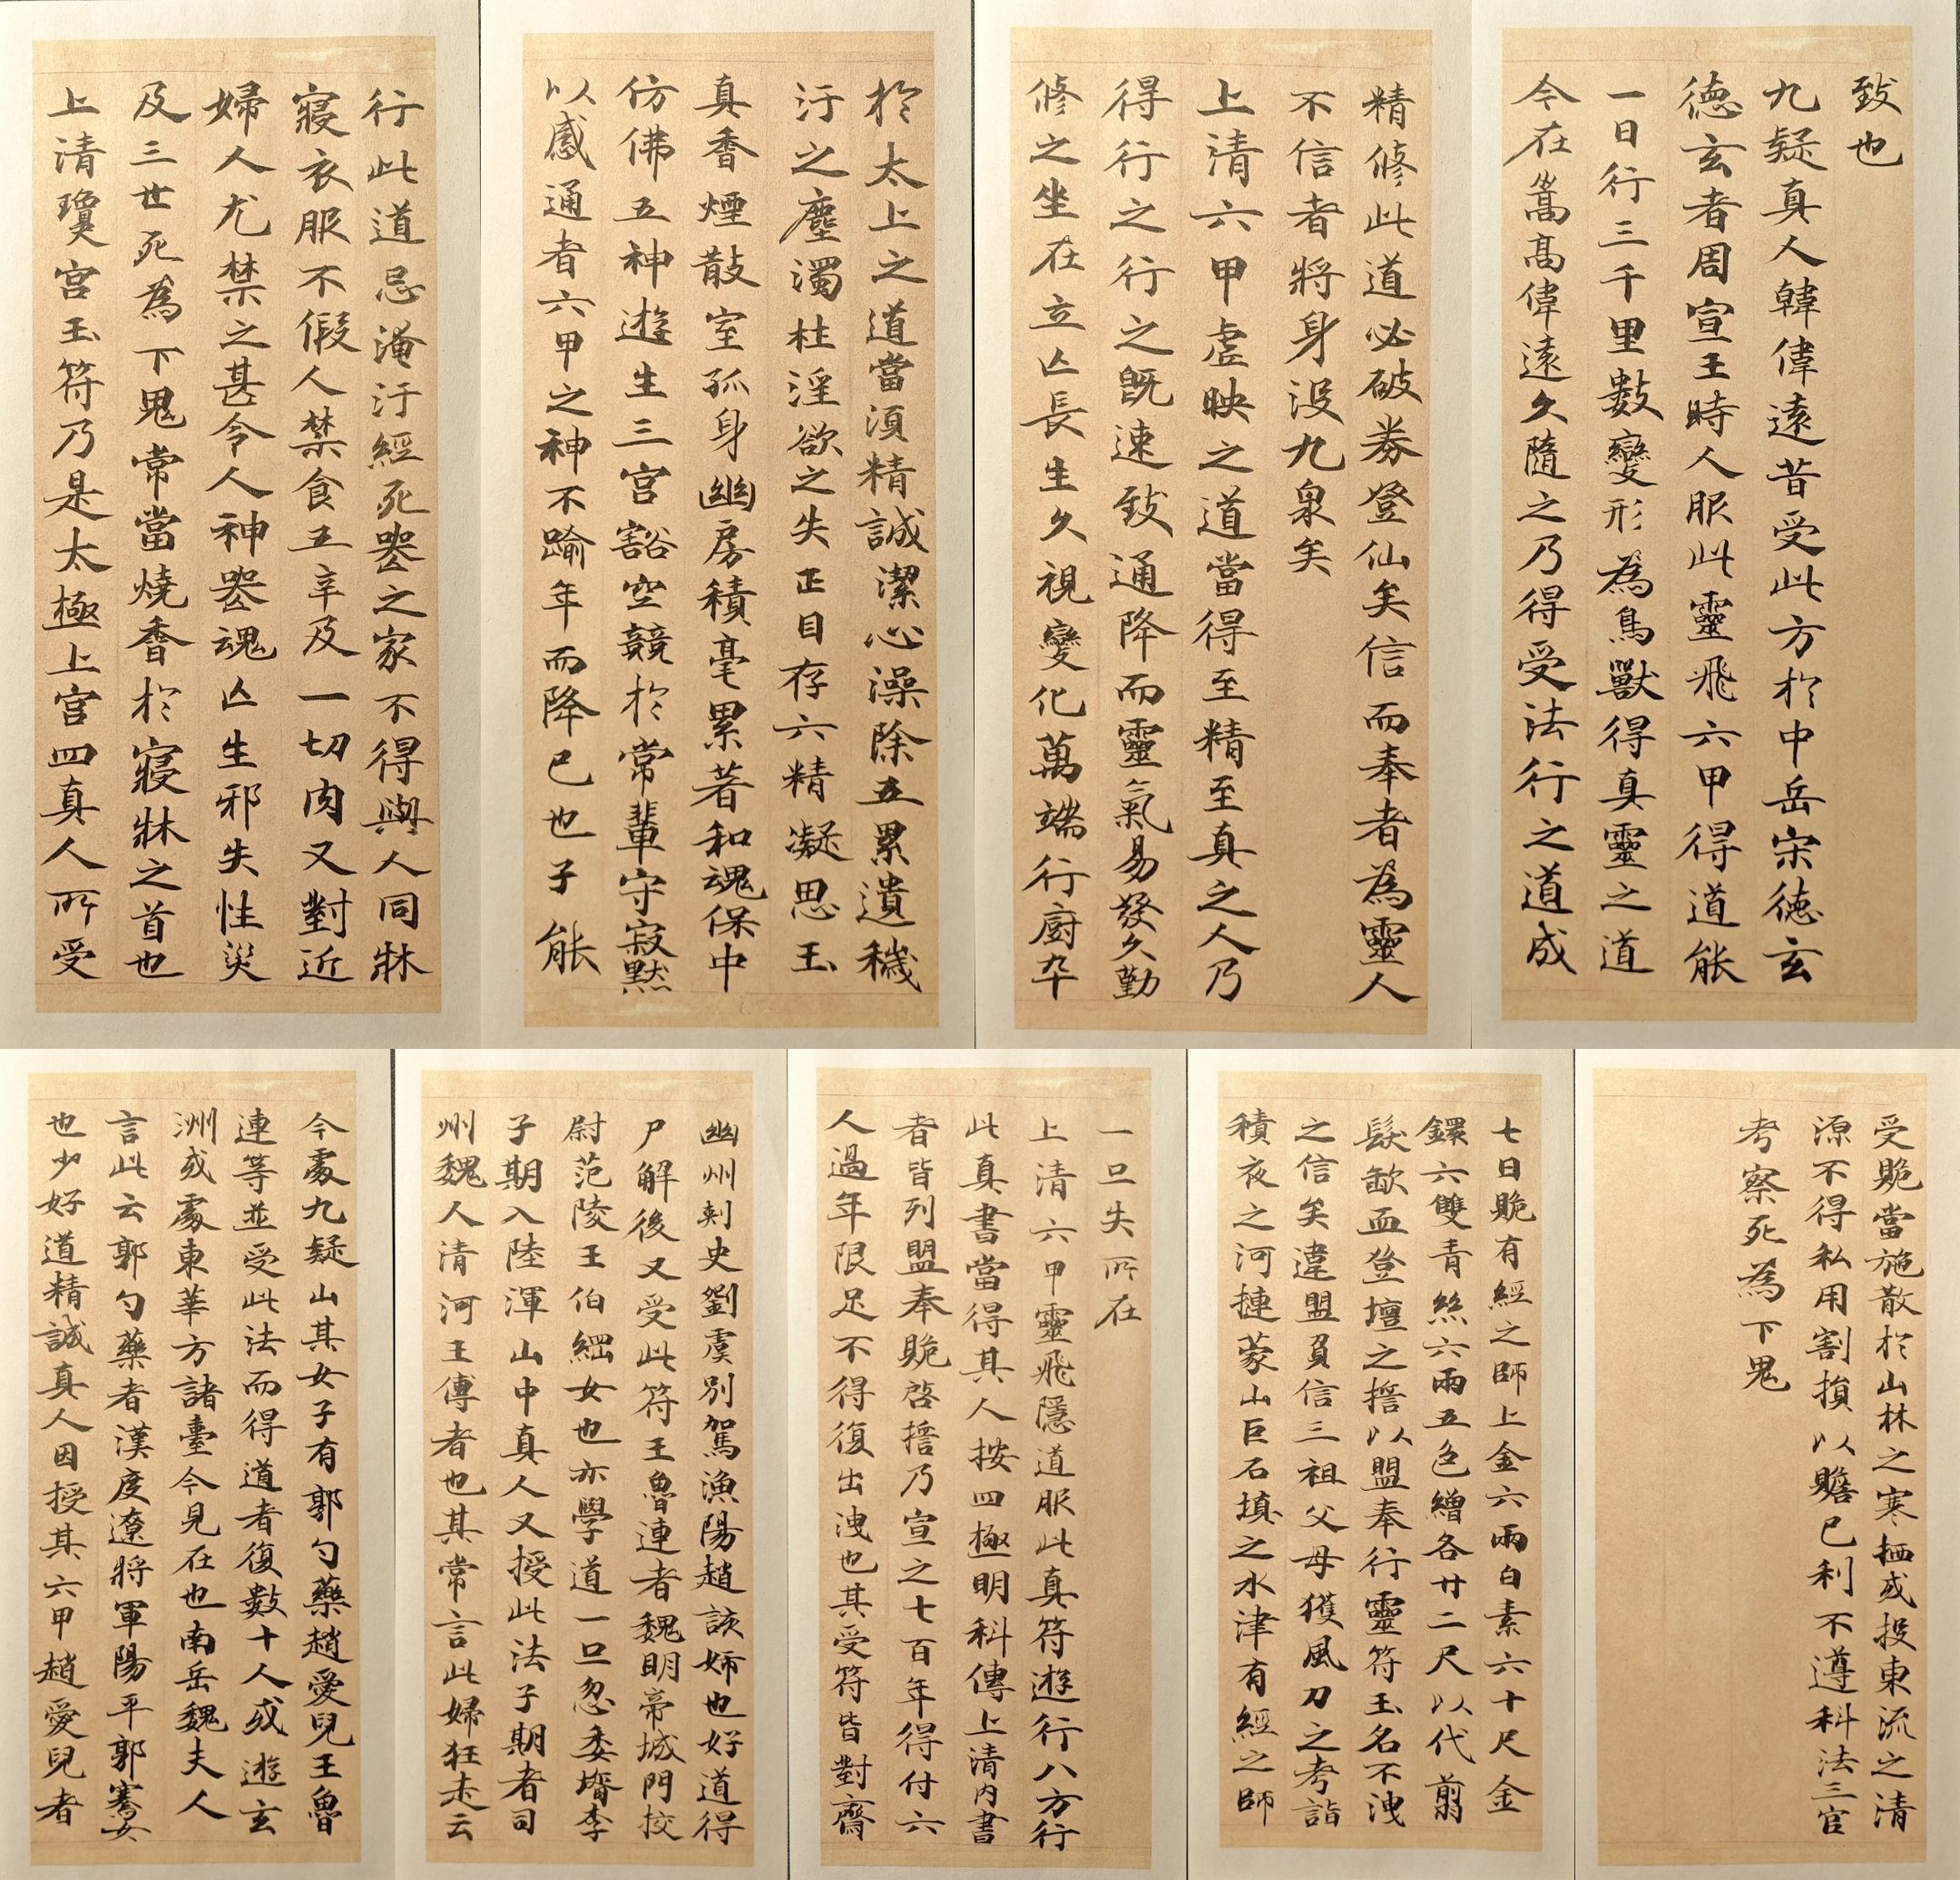 行此道忌淹汙經死喪之家不得與人同牀
寢衣服不假人禁食五辛及一切肉又對近
婦人尤禁之甚令人神喪魂亡生邪失性災
及三世死為下鬼常當燒香於寢牀之首也
上清瓊宮玉符乃是太極上宮四真人所受
於太上之道當須精誠潔心澡除五累遺穢
汙之塵濁杜淫欲之失正目存六精凝思玉
真香煙散室孤身幽房積毫累著和魂保中
仿佛五神遊生三宮豁空競於常輩守寂默
以感通者六甲之神不踰年而降已也子能
精修此道必破券登仙矣信而奉者為靈人
不信者將身沒九泉矣
上清六甲虛映之道當得至精至真之人乃
得行之行之既速致通降而靈氣易發久勤
修之坐在立亡長生久視變化萬端行廚卒
致也
九疑真人韓偉遠昔受此方於中岳宋德玄
德玄者周宣王時人服此靈飛六甲得道能
一日行三千里數變形為鳥獸得真靈之道
今在嵩高偉遠久隨之乃得受法行之道成
今處九疑山其女子有郭勺藥趙愛兒王魯
連等並受此法而得道者復數十人或遊玄
洲或處東華方諸臺今見在也南岳魏夫人
言此云郭勺藥者漢度遼將軍陽平郭騫女
也少好道精誠真人因授其六甲趙愛兒者
幽州刺史劉虞別駕漁陽趙該姊也好道得
尸解後又受此符王魯連者魏明帝城門挍
尉范陵王伯綱女也亦學道一旦忽委壻李
子期入陸渾山中真人又授此法子期者司
州魏人清河王傅者也其常言此婦狂走云
一旦失所在
上清六甲靈飛隱道服此真符遊行八方行
此真書當得其人按四極明科傳上清內書
者皆列盟奉貺啓誓乃宣之七百年得付六
人過年限足不得復出洩也其受符皆對齋
七日貺有經之師上金六兩白素六十尺金
鐶六雙青絲六兩五色繒各廿二尺以代翦
髮歃血登壇之誓以盟奉行靈符玉名不洩
之信矣違盟負信三祖父母獲風刀之考詣
積夜之河搪蒙山巨石填之水津有經之師
受貺當施散於山林之寒栖或投東流之清
源不得私用割損以贍己利不遵科法三官
考察死為下鬼